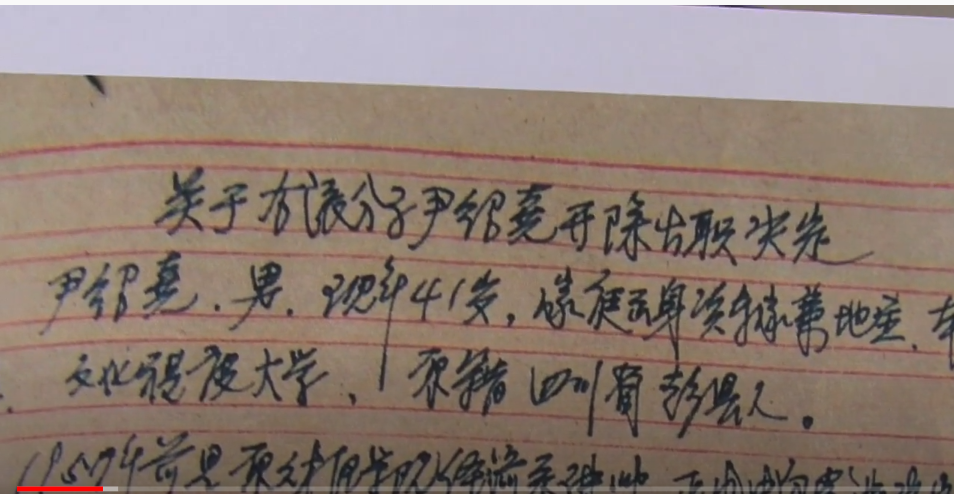 关于右派分子尹绍尧开除公职决定
尹绍尧.男.现年41岁,家庭出身资本家兼地主.本
文化程度大学,原籍四川省彭县人。
1957年前是原